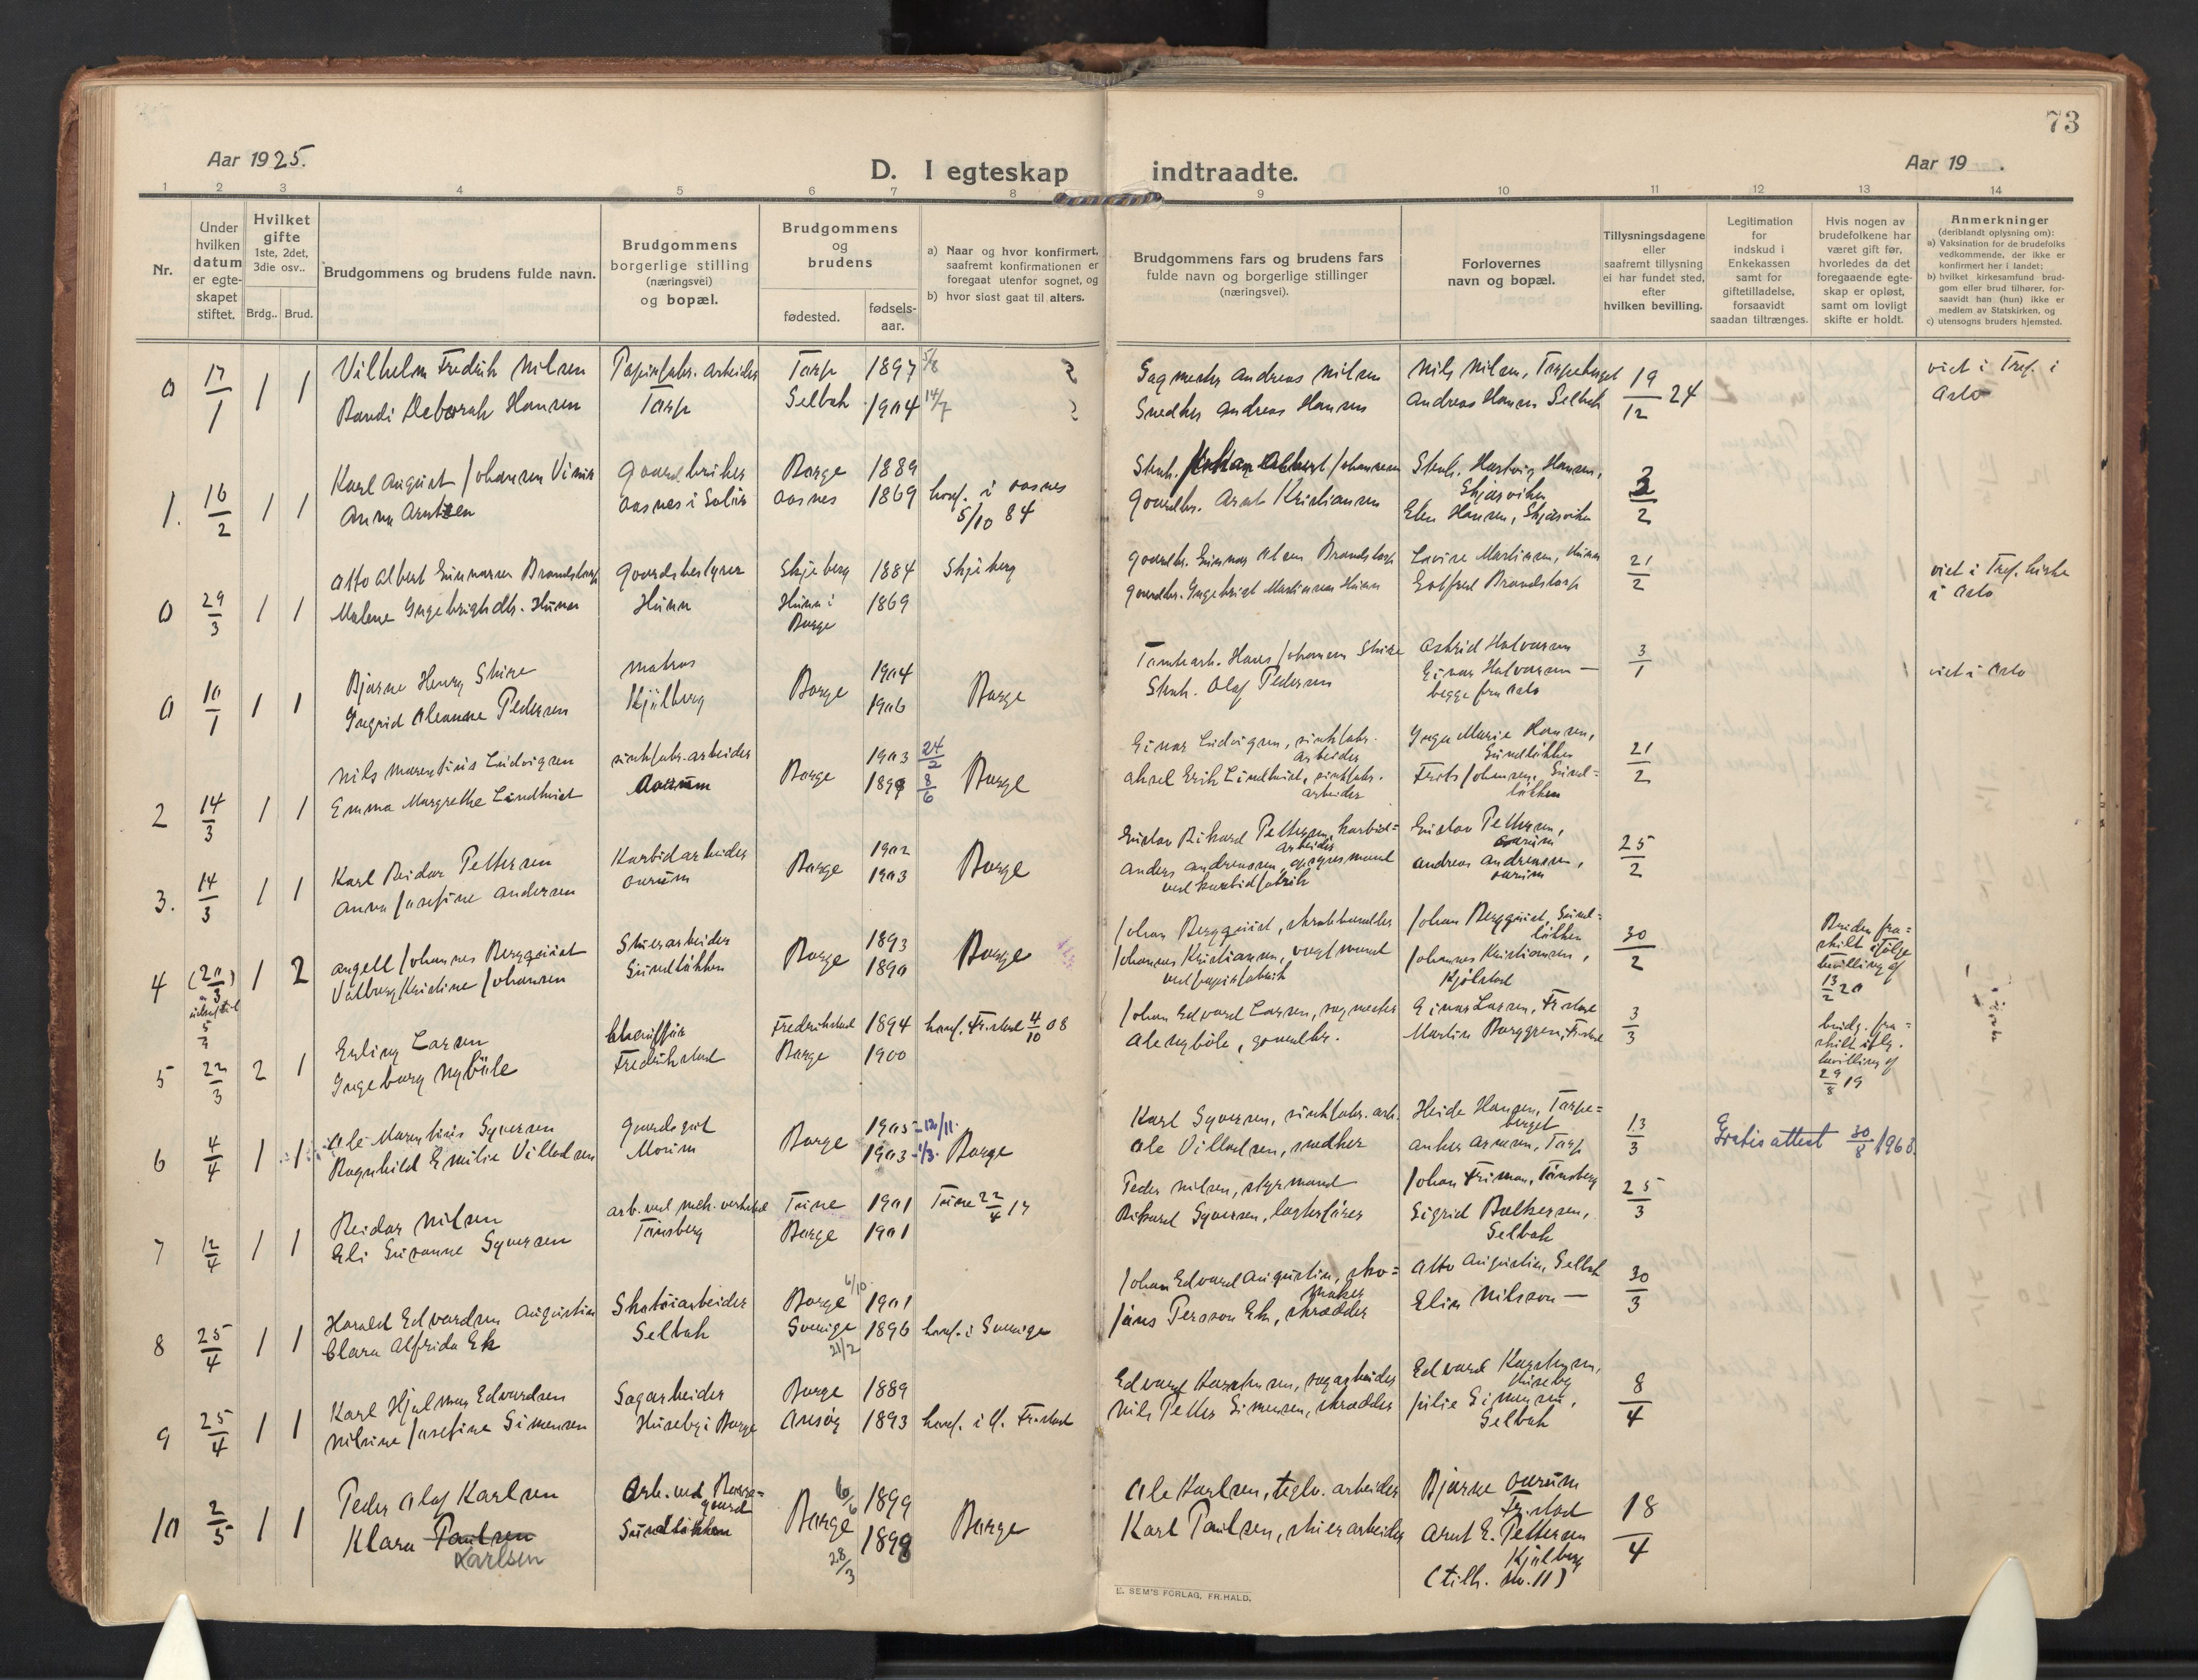 73
Aar 1925.
D. I egteskap indtraadte.
Aar 19 .
1 2 3 4 5 6 7 8 9 10 11 12 13 14
Nr.
Under
hvilken
datum
er egte-
skapet
stiftet.
Hvilket
gifte
1ste, 2det,
3die osv..
Brdg.. Brud.
Brudgommens og brudens fulde navn.
Brudgommens
borgerlige stilling
(næringsvei)
og bopæl.
Brudgommens
og
brudens
fødested.
fødsels-
aar.
a) Naar og hvor konfirmert,
saafremt konfirmationen er
foregaat utenfor sognet, og
b) hvor sidst gaat til alters.
Brudgommens fars og brudens fars
fulde navn og borgerlige stillinger
(næringsvei).
Forlovernes
navn og bopæl.
Tillysningsdagene
eller
saafremt tillysning
ei har fundet sted,
efter
hvilken bevilling.
Legitimation
for
indskud i
Enkekassen
samt for
giftetilladelse,
forsaavidt
saadan tiltrænges.
Hvis nogen av
brudefolkene har
været gift før,
hvorledes da det
foregaaende egte-
skap er opløst,
samt om lovligt
skifte er holdt.
Anmerkninger
(deriblandt oplysning om):
a) Vaksination for de brudefolks
vedkommende, der ikke er
konfirmert her i landet;
b) hvilket kirkesamfund brud-
gom eller brud tilhører, for-
saavidt han (hun) ikke er
medlem av Statskirken, og
c) utensogns bruders hjemsted.
0 17/1 1 1 Vilhelm Fredrik Nilsen Papirfabr. arbeider Torp 1897 5/8 ? Sagmester Andreas Nilsen Nils Nilsen, Torpeberget 19/12 24 viet i Tref. i
Randi Deborah Hansen Torp Selbak 1904 14/7 ? Snedker Andreas Hansen Andreas Hansen Selbak Oslo
1. 16/2 1 1 Karl August Johansen Gaardbruker Borge 1889 Johan Albert Johansen Hartvig Hansen, 3/2
Skjærviken
Anna Arntzen Aasnes i Solør Aasnes 1869 konf. i Aasnes Gaardbr. Arnt Kristiansen
5/10 84 Hansen, Skjærviken
0 29/3 1 1 Otto Albert Gunnarsen Brandstorp Gaardsbestyrer Skjeberg 1884 Skjeberg Gaardbr. Gunnar Olsen Brandstorp Lovise Martinsen, Hunn 21/2 viet i Tref. kirke
Malene Ingebrigtsdtr. Hunn Hunn Hunn i 1869 Gaardbr. Ingebrigt Martinsen Hunn Gotfred Brandstorp i Oslo
Borge
0 10/1 1 1 Bjarne Henry Skire matros Borge 1904 Borge Hans Johansen Skire Astrid Halvorsen 3/1 viet i Oslo
Ingrid Oleanne Pedersen Kjølberg 1906 Olaf Pedersen Einar Halvorsen —
begge fra Oslo
2 14/3 1 1 Nils Marentius Ludvigsen sinkfabr. arbeider Borge 1903 24/2 Borge Einar Ludvigsen, sinkfabr. Inga Marie Hansen, 21/2
arbeider Sundløkken
Emma Margrethe Lindkvist Oarum 1899 8/6 Aksel Erik Lindkvist, sinkfabr. Frits Johansen, Sund=
arbeider løkken
3. 14/3 1 1 Karl Reidar Pettersen Karbidarbeider Borge 1902 Borge Gustav Rikard Pettersen, karbid= Gustav Pettersen, 25/2
arbeider Oarum
Anna Josefine Andersen Ourum 1903 Anders Andreassen, opsynsmand Andreas Andreassen,
ved karbidfabrik Ourum
4 (20/3) 1 2 Angell Johannes Bergquist Stuerarbeider Borge 1893 Borge Johan Bergquist, skraphandler Johan Bergquist, Sund= 30/2 Bruden fra=
løkken skilt ifølge
Valborg Kristine Johansen Sundløkken 1890 Johannes Kristiansen, vagtmand Johannes Kristiansen, bevilling af
ved papirfabrik Kjølstad 13/2 20
5 22/3 2 1 Erling Larsen Chauffør Fredrikstad 1894 konf. Fr.stad 4/10 08 Johan Edvard Larsen, sagmester Einar Larsen, Fr.stad 3/3 brudg. fra=
Ingeborg Nybøle Fredrikstad Borge 1900 Ole Nybøle, gaardbr. Martin Borggren, Fr.stad skilt ifølg.
bevilling af
29/8 19
6 4/4 1 1 Ole Marentius Syversen Gaardsgut Borge 1905 - 12/11. Borge Karl Syversen, sinkfabr. arb. Heide Hansen, Torpe= 13/3
berget
Ragnhild Emilie Villadsen Moum 1903 - 1/3. Ole Villadsen, snedker Anker Torp Gratisattest 30/8 1963.
7 12/4 1 1 Reidar Nilsen arb. ved mek. verksted Tune 1901 Tune 22/4 17 Peder Nilsen, styrmand Johan Friman, Tønsberg 25/3
Eli Susanne Syversen Tønsberg Borge 1901 Rikard Syversen, Sigrid Balkersen,
Selbak
8 25/4 1 1 Harald Edvardsen Augustin Skotøiarbeider Borge 6/10 1901 Johan Edvard Augustin, sko= Otto Augustin, Selbak 30/3
maker
Clara Alfrida Ek Selbak Sverige 21/2 1896 konf. i Sverige Jøns Persson Ek, skrædder Elin Nilsson —
9 25/4 1 1 Karl Hjalmar Edvardsen Sagarbeider Borge 1889 Edvard Karstensen, sagarbeider Edvard Karstensen, 8/4
Huseby
Nilsine Josefine Simensen Huseby i Borge Onsøy 1893 konf. i Fr.stad Nils Petter Simensen, skrædder Julie Simensen,
Selbak
10 2/5 1 1 Peder Olaf Karlsen Arb. ved Borge= Borge 6/6 1899 Borge Ole Karlsen, teglv. arbeider Bjarne Ourum 18/4
gaard Fr.stad
Klara Paulsen Sundløkken 28/3 1898 Karl Paulsen, stuerarbeider Arnt E. Pettersen
Karlsen Kjølberg
(tilh. nr. 11)
E. SEM'S FORLAG, FR.HALD.